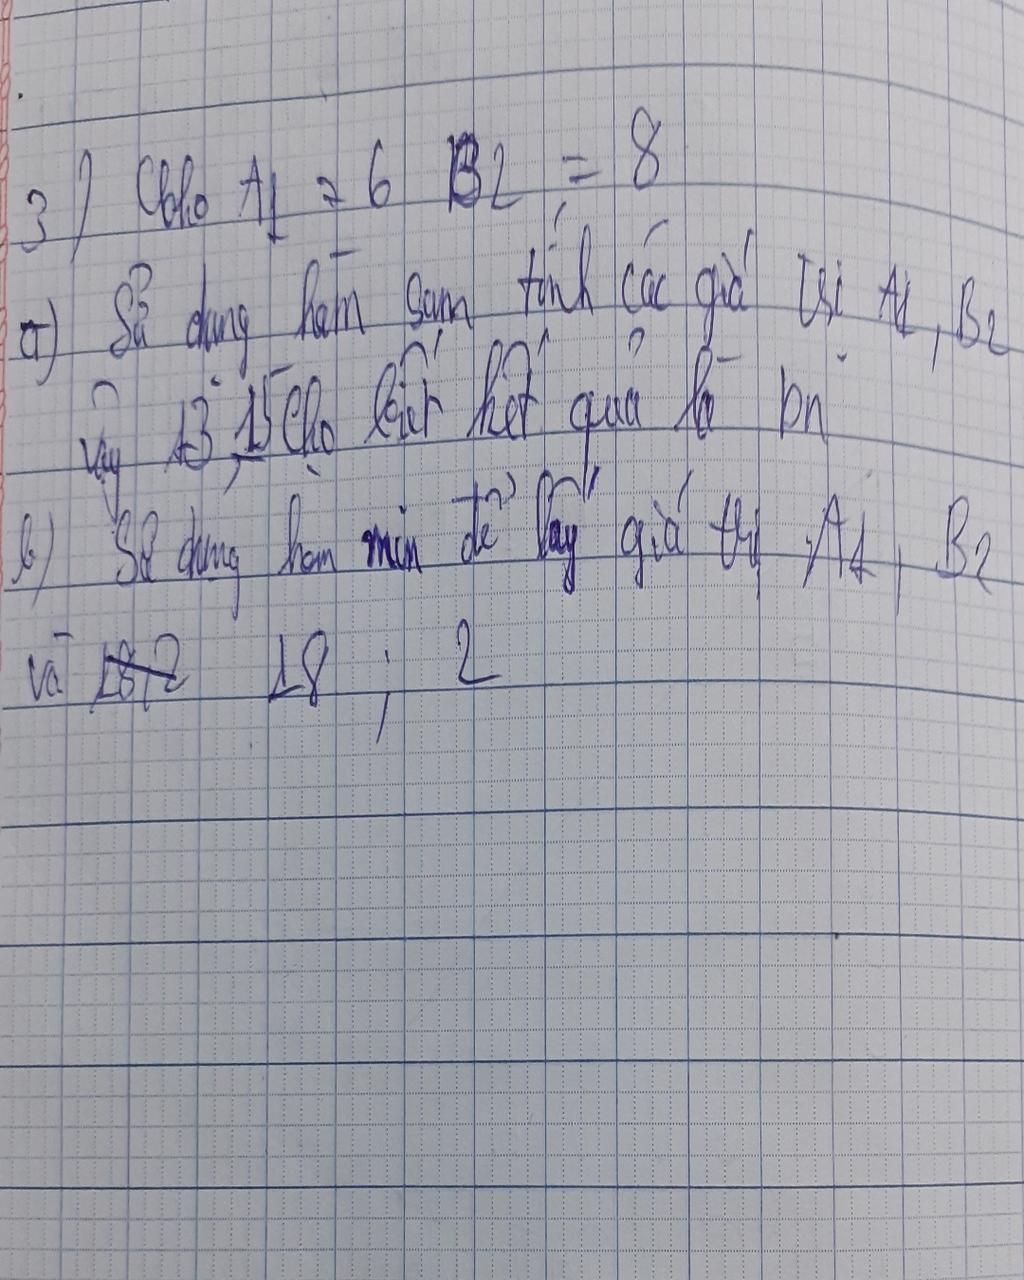 3) Cho A1 = 6 B2 = 8
a) Sử dụng hàm sum tính các giá trị A1, B2
vậy 13, 15 cho biết kết quả là bn
b) Sử dụng hàm min để lấy giá trị A1, B2
và 18 ; 2